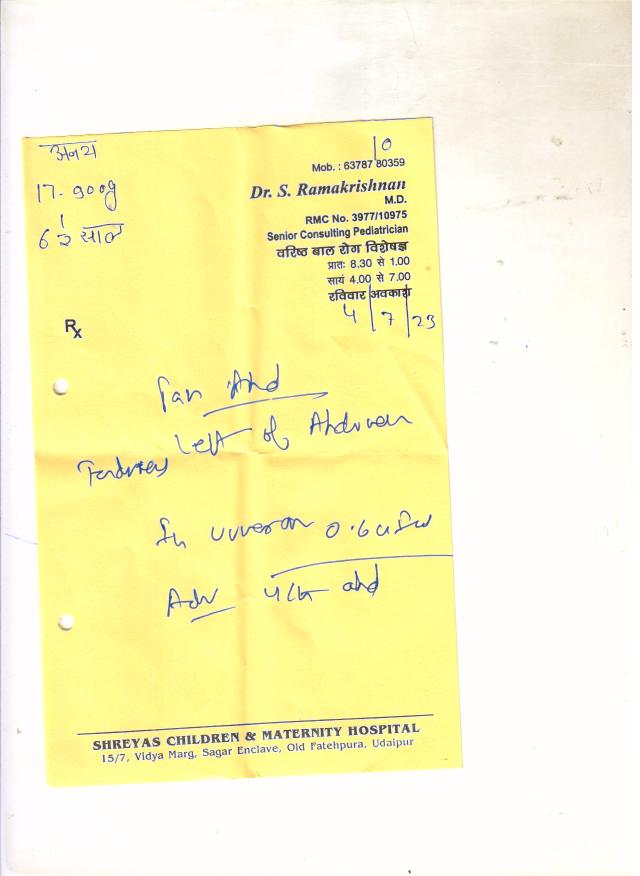 अनय
10
Mob. : 63787 80359
17-900g
Dr. S. Ramakrishnan
M.D.
RMC No. 3977/10975
6 1/2 साल
Senior Consulting Pediatrician
वरिष्ठ बाल रोग विशेषज्ञ
प्रातः 8.30 से 1.00
सायं 4.00 से 7.00
रविवार अवकाश
4/7/23
Rx
Pain Abd
Left of Abdomen
Tenderness
Adv
SHREYAS CHILDREN & MATERNITY HOSPITAL
15/7, Vidya Marg, Sagar Enclave, Old Fatehpura, Udaipur